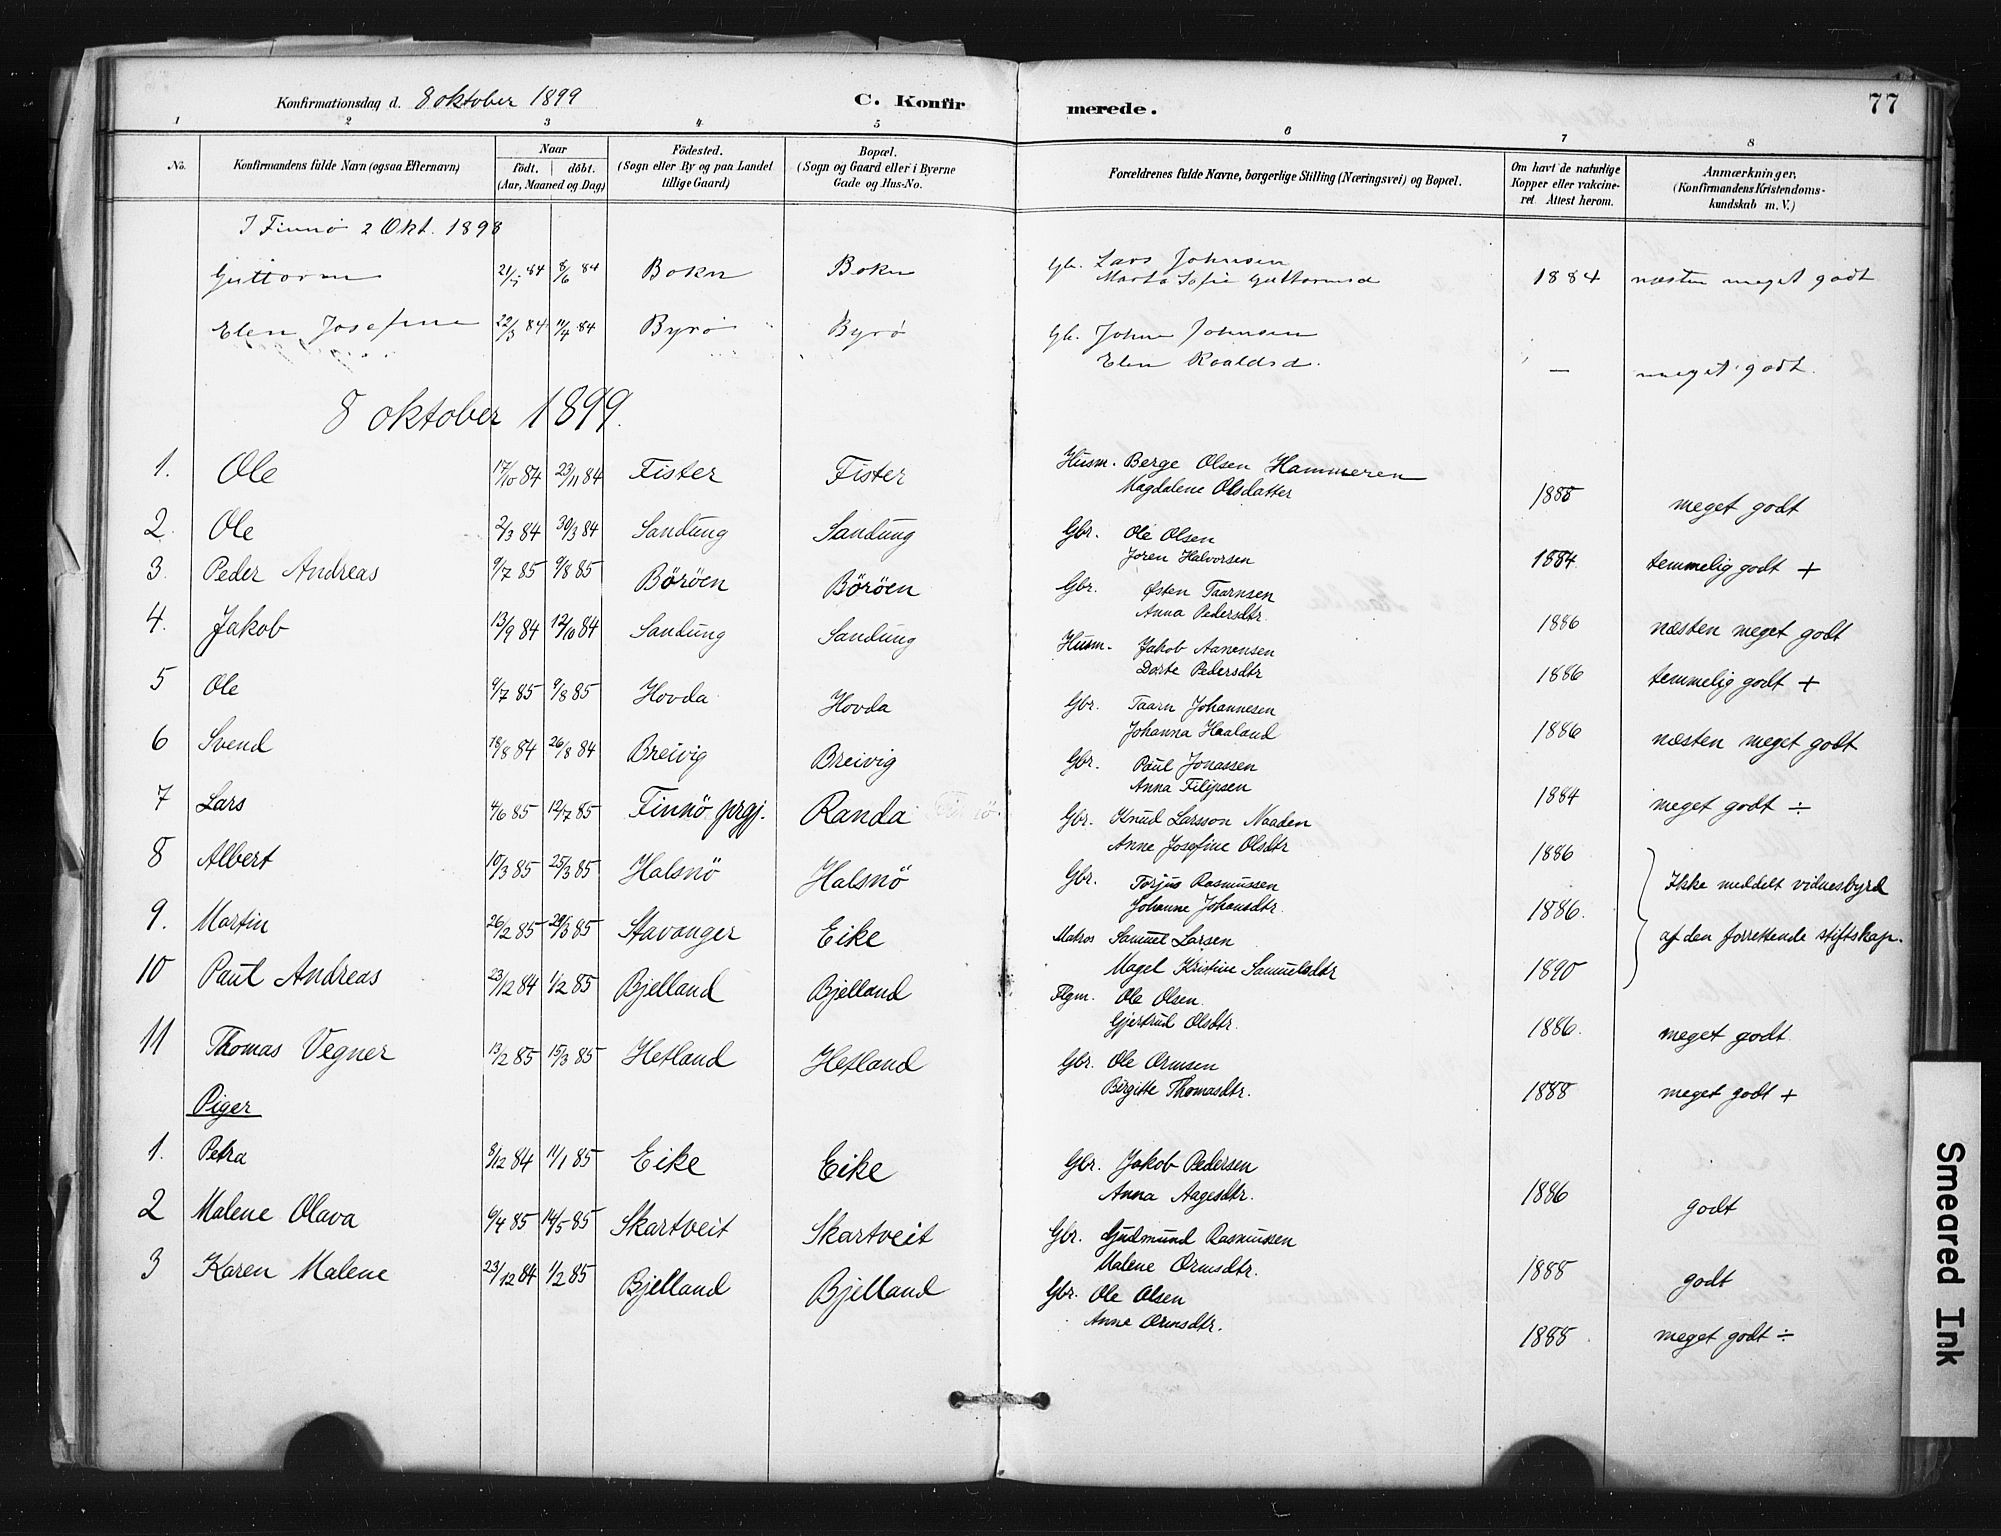 Konfirmationsdag d. 8 oktober 1899 C. Konfirmerede. 77
1 2 3 4 5 6 7 8
No. Konfirmandens fulde Navn (ogsaa Efternavn) Naar födt. döbt. (Aar, Maaned og Dag) Födested. (Sogn eller By og paa Landet tillige Gaard) Bopæl. (Sogn og Gaard eller i Byerne Gade og Hus-No. Forældrenes fulde Navne, borgerlige Stilling (Næringsvei) og Bopæl. Om havt de naturlige Kopper eller vakcineret. Attest herom. Anmærkninger, (Konfirmandens Kristendomskundskab m. V.)
I Finnö 2 Okt. 1898
Guttorm 84 8/6 84 Bokn Bokn Gb. Lars Johnsen
Marta Sofie Guttormsd 1884 næsten meget godt
Elen Josefine 22/3 84 11/4 84 Byrö Byrö Gb. John Johnsen
Elen Roaldsd. — meget godt.
8 oktober 1899.
1. Ole 17/10 84 23/11 84 Fister Fister Husm. Berge Olsen Hammeren
Magdalene Olsdatter 1885 meget godt
2. Ole 2/3 84 30/3 84 Sandung Sandung Gbr. Ole Olsen
Joren Halvorsen 1884 temmelig godt +
3. Peder Andreas 9/7 85 9/8 85 Böröen Böröen Gbr. Østen Taarnsen
Anna Pedersdtr. 1886 næsten meget godt
4. Jakob 13/9 84 12/10 84 Sandung Sandung Husm. Jakob Aanensen
Dorte Pedersdtr 1886 temmelig godt +
5 Ole 9/7 85 9/8 85 Hovda Hovda Gbr. Taarn Johannesen
Johanna Haaland 1886 næsten meget godt
6 Svend 18/8 84 26/8 84 Breivig Breivig Gbr. Paul Jonassen
Anna Filipsen 1884 meget godt ÷
7 Lars 4/6 85 12/7 85 Finnö prgj. Randa Gbr. Knud Larsson Naaden
Anne Josefine Olsdtr 1886
8 Albert 10/3 85 25/3 85 Halsnö Halsnö Gbr. Torjus Rasmussen
Johanne Johansdtr. 1886. Ikke meddelt vidnesbyrd
9. Martin 26/2 85 29/3 85 Stavanger Eike Matros Samuel Larsen
Magel Kristine Samuelsdtr 1890 af den forrettende stiftskap.
10 Paul Andreas 23/12 84 1/2 85 Bjelland Bjelland Flgm. Ole Olsen
Gjertrud Olsdtr. 1886. meget godt
11 Thomas Vegner 13/2 85 15/3 85 Hetland Hetland Gbr. Ole Ormsen
Birgitte Thomasdtr. 1888 meget godt +
Piger
1. Petra 8/12 84 11/1 85 Eike Eike Gbr. Jakob Pedersen
Anna Aagesdtr. 1886 godt
2 Malene Olava 9/4 85 14/5 85 Skartveit Skartveit Gbr. Gudmund Rasmussen
Malene Ormsdtr. 1888 godt
3 Karen Malene 23/12 84 1/2 85 Bjelland Bjelland Gbr. Ole Olsen
Anne Ormsdtr. 1888 meget godt ÷
Smeared Ink